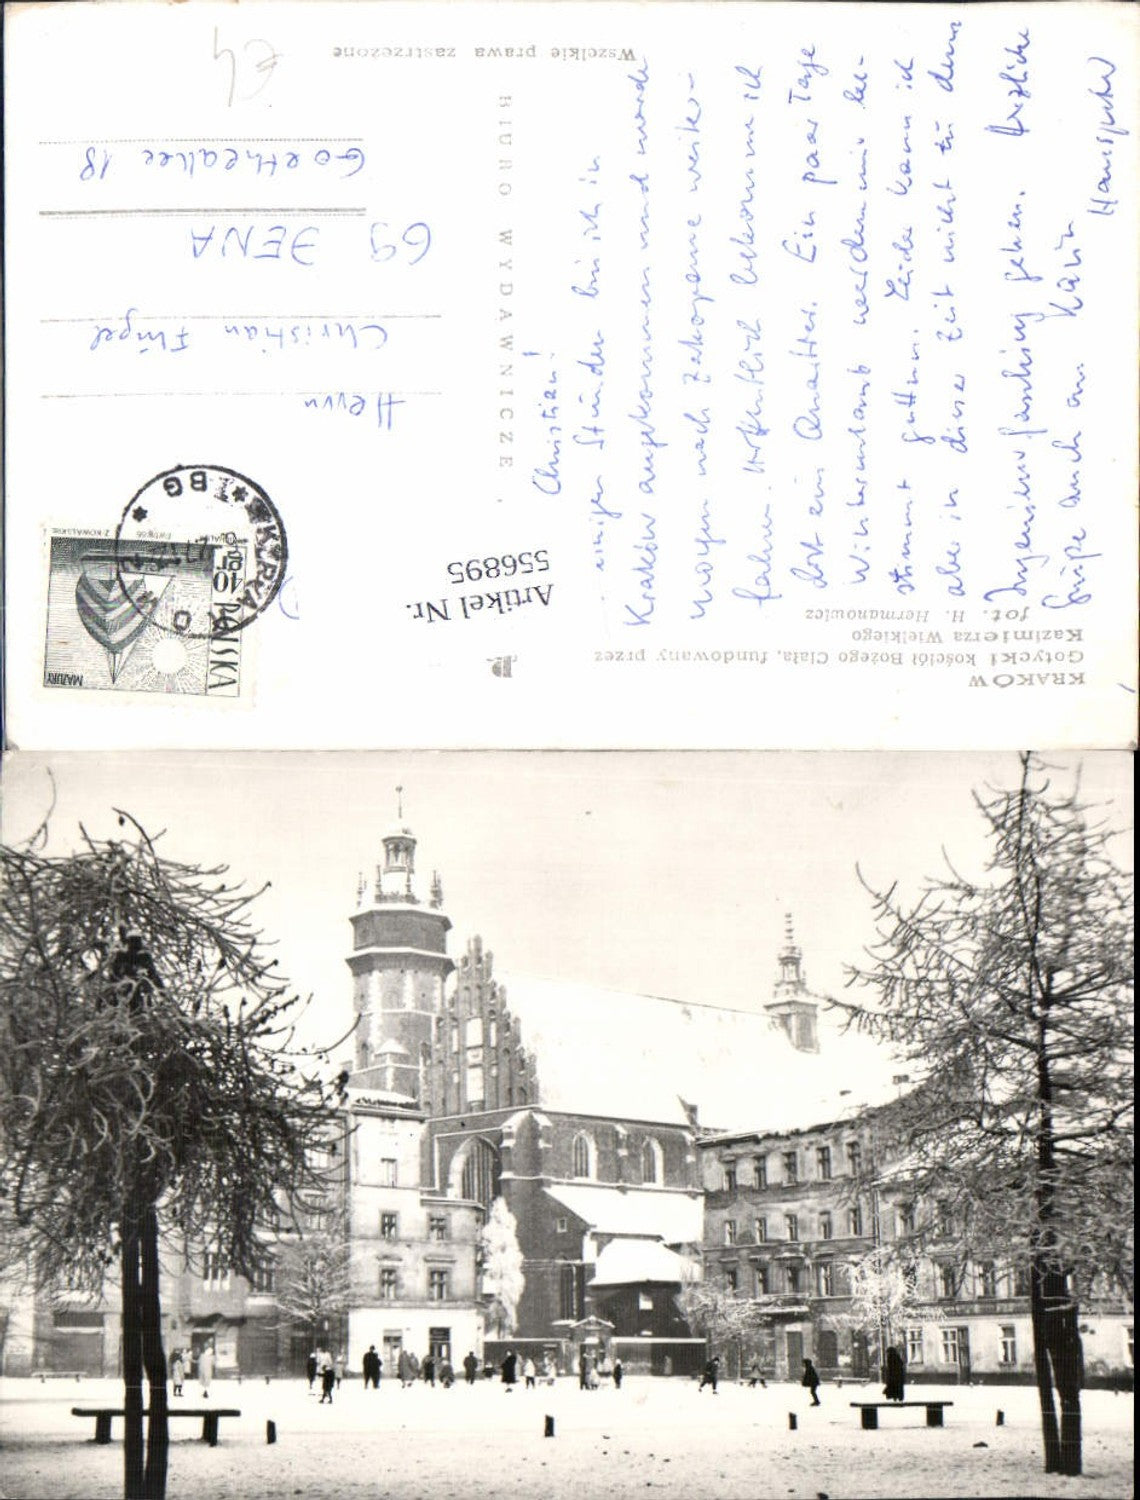 KRAKÓW
Gotycki kościół Bożego Ciała, fundowany przez
Kazimierza Wielkiego
fot. H. Hermanowicz
Artikel Nr.
556895
Christian!
einigen Stunden bin ich in
Kraków angekommen und werde
morgen nach Zakopane weiter-
fahren. Hoffentlich bekomme ich
dort ein Quartier. Ein paar Tage
Winterurlaub werden mir be-
stimmt guttun. Leider kann ich
aber in dieser Zeit nicht zu dem
Ingenieurfasching gehen. Herzliche
Grüße auch an Karin
Hanspeter
BIURO WYDAWNICZE
POLSKA
40 gr
MAZURY
Z. KOWALSKI
Herrn
Christian Flügel
69 JENA
Goetheallee 18
Wszelkie prawa zastrzeżone
€4